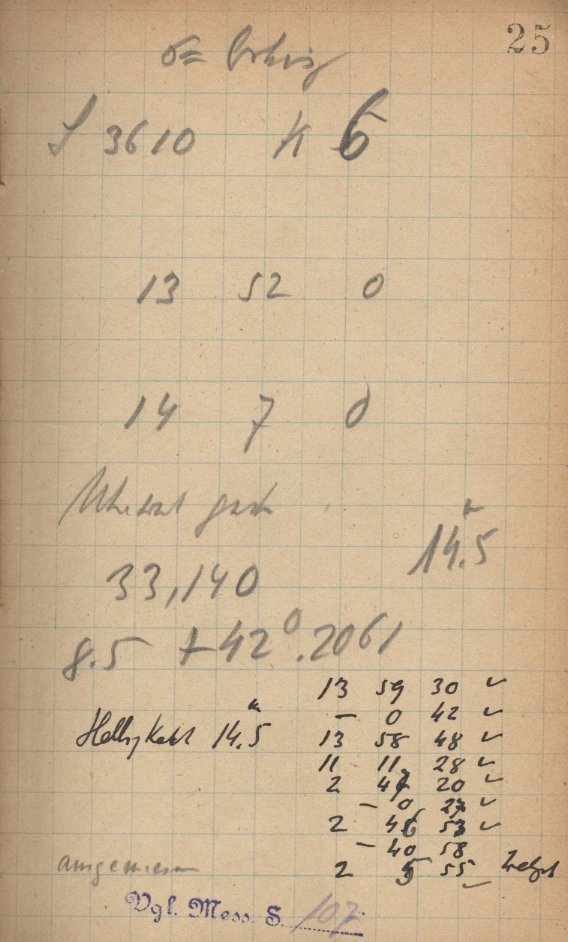 25
S 3610 K 6
13 52 0
14 7 0
14.5 m
33,140
8.5 +42°.2061
13 59 30 ✓
– 0 42 ✓
Helligkeit 14.5 m 13 58 48 ✓
11 11 28 ✓
2 47 20 ✓
– 0 27 ✓
2 46 53 ✓
– 40 58
2 5 55
ausgemessen
Vgl. Mess. S. 107